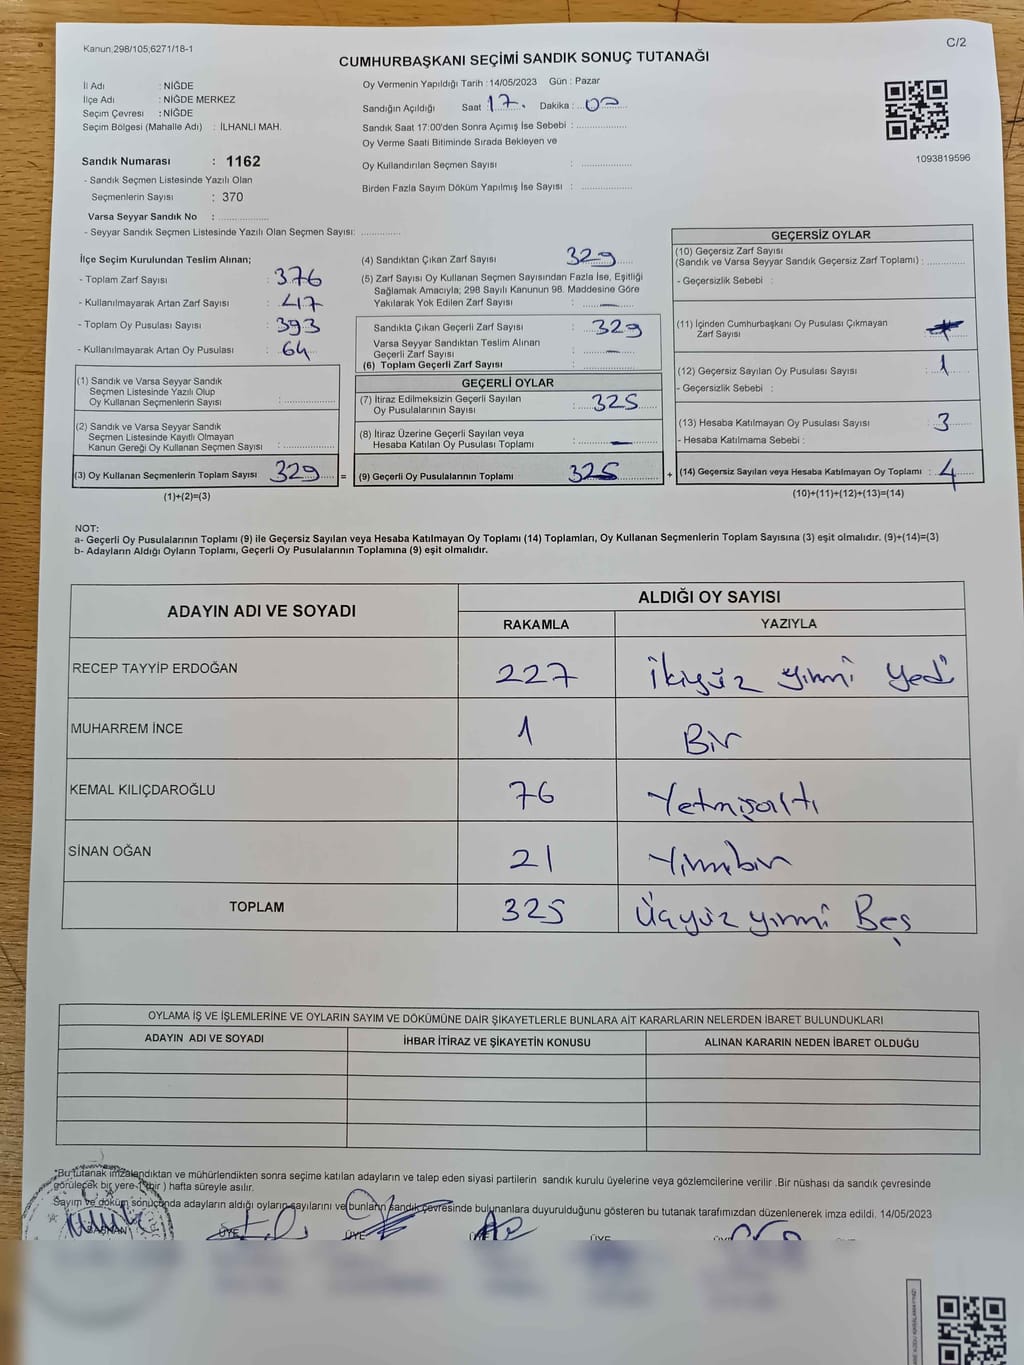 Kanun,298/105,6271/18-1
C/2
CUMHURBAŞKANI SEÇİMİ SANDIK SONUÇ TUTANAĞI
İl Adı : NİĞDE
İlçe Adı : NİĞDE MERKEZ
Seçim Çevresi : NİĞDE
Seçim Bölgesi (Mahalle Adı) : İLHANLI MAH.
Oy Vermenin Yapıldığı Tarih : 14/05/2023 Gün : Pazar
Sandığın Açıldığı Saat 17 Dakika : 00
Sandık Saat 17:00'den Sonra Açımış İse Sebebi :
Oy Verme Saati Bitiminde Sırada Bekleyen ve
Oy Kullandırılan Seçmen Sayısı :
Birden Fazla Sayım Döküm Yapılmış İse Sayısı :
1093819596
Sandık Numarası : 1162
- Sandık Seçmen Listesinde Yazılı Olan
Seçmenlerin Sayısı : 370
Varsa Seyyar Sandık No :
- Seyyar Sandık Seçmen Listesinde Yazılı Olan Seçmen Sayısı:
İlçe Seçim Kurulundan Teslim Alınan;
- Toplam Zarf Sayısı : 376
- Kullanılmayarak Artan Zarf Sayısı : 47
- Toplam Oy Pusulası Sayısı : 393
- Kullanılmayarak Artan Oy Pusulası : 64
(1) Sandık ve Varsa Seyyar Sandık
Seçmen Listesinde Yazılı Olup
Oy Kullanan Seçmenlerin Sayısı :
(2) Sandık ve Varsa Seyyar Sandık
Seçmen Listesinde Kayıtlı Olmayan
Kanun Gereği Oy Kullanan Seçmen Sayısı :
(3) Oy Kullanan Seçmenlerin Toplam Sayısı 329 =
(1)+(2)=(3)
(4) Sandıktan Çıkan Zarf Sayısı : 329
(5) Zarf Sayısı Oy Kullanan Seçmen Sayısından Fazla İse, Eşitliği
Sağlamak Amacıyla; 298 Sayılı Kanunun 98. Maddesine Göre
Yakılarak Yok Edilen Zarf Sayısı : —
Sandıkta Çıkan Geçerli Zarf Sayısı : 329
Varsa Seyyar Sandıktan Teslim Alınan
Geçerli Zarf Sayısı : —
(6) Toplam Geçerli Zarf Sayısı :
GEÇERLİ OYLAR
(7) İtiraz Edilmeksizin Geçerli Sayılan
Oy Pusulalarının Sayısı : 325
(8) İtiraz Üzerine Geçerli Sayılan veya
Hesaba Katılan Oy Pusulası Toplamı : —
(9) Geçerli Oy Pusulalarının Toplamı 325 +
GEÇERSİZ OYLAR
(10) Geçersiz Zarf Sayısı
(Sandık ve Varsa Seyyar Sandık Geçersiz Zarf Toplamı) :
- Geçersizlik Sebebi :
(11) İçinden Cumhurbaşkanı Oy Pusulası Çıkmayan
Zarf Sayısı :
(12) Geçersiz Sayılan Oy Pusulası Sayısı : 1
- Geçersizlik Sebebi :
(13) Hesaba Katılmayan Oy Pusulası Sayısı : 3
- Hesaba Katılmama Sebebi :
(14) Geçersiz Sayılan veya Hesaba Katılmayan Oy Toplamı : 4
(10)+(11)+(12)+(13)=(14)
NOT:
a- Geçerli Oy Pusulalarının Toplamı (9) ile Geçersiz Sayılan veya Hesaba Katılmayan Oy Toplamı (14) Toplamları, Oy Kullanan Seçmenlerin Toplam Sayısına (3) eşit olmalıdır. (9)+(14)=(3)
b- Adayların Aldığı Oyların Toplamı, Geçerli Oy Pusulalarının Toplamına (9) eşit olmalıdır.
ADAYIN ADI VE SOYADI ALDIĞI OY SAYISI
RAKAMLA YAZIYLA
RECEP TAYYİP ERDOĞAN 227 ikiyüz yirmi yedi
MUHARREM İNCE 1 Bir
KEMAL KILIÇDAROĞLU 76 Yetmişaltı
SİNAN OĞAN 21 Yirmibir
TOPLAM 325 Üçyüz yirmi Beş
OYLAMA İŞ VE İŞLEMLERİNE VE OYLARIN SAYIM VE DÖKÜMÜNE DAİR ŞİKAYETLERLE BUNLARA AİT KARARLARIN NELERDEN İBARET BULUNDUKLARI
ADAYIN ADI VE SOYADI İHBAR İTİRAZ VE ŞİKAYETİN KONUSU ALINAN KARARIN NEDEN İBARET OLDUĞU
*Bu tutanak imzalandıktan ve mühürlendikten sonra seçime katılan adayların ve talep eden siyasi partilerin sandık kurulu üyelerine veya gözlemcilerine verilir .Bir nüshası da sandık çevresinde
görülecek bir yere ( bir ) hafta süreyle asılır.
Sayım ve döküm sonucunda adayların aldığı oyların sayılarını ve bunların sandık çevresinde bulunanlara duyurulduğunu gösteren bu tutanak tarafımızdan düzenlenerek imza edildi. 14/05/2023
BAŞKAN ÜYE ÜYE ÜYE ÜYE